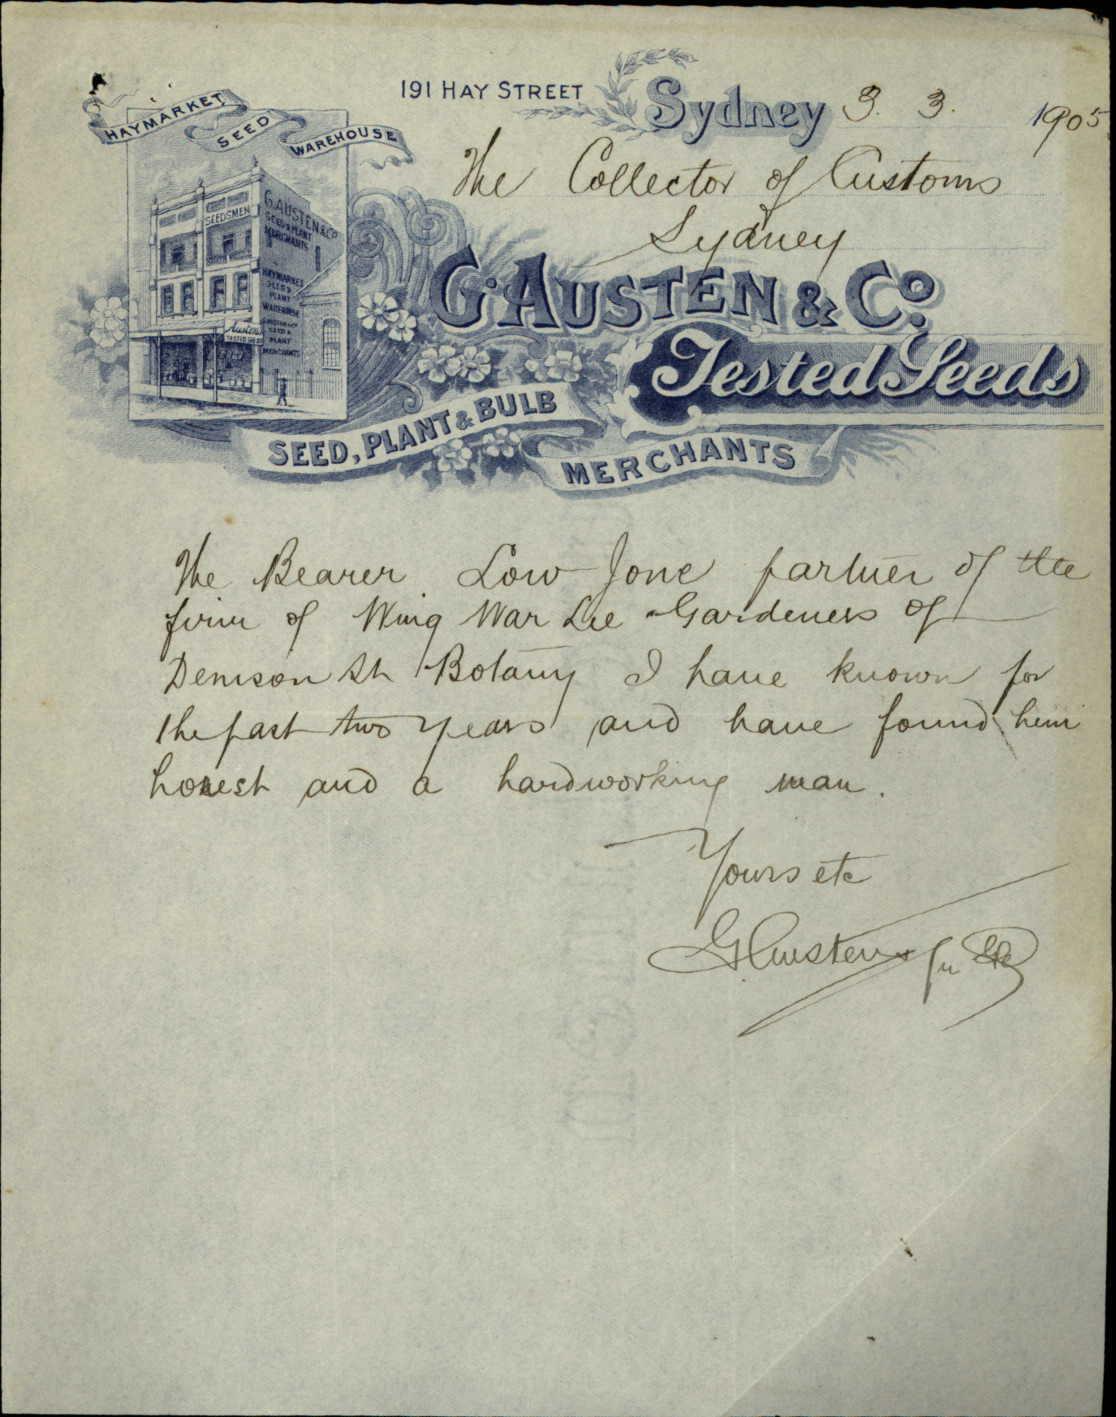 HAYMARKET SEED WAREHOUSE
191 HAY STREET Sydney 3. 3. 1905
The Collector of Customs
Sydney
SEEDSMEN
G. AUSTEN & Co
SEED & PLANT
MERCHANTS
HAYMARKET
SEED &
PLANT
WAREHOUSE
SEED &
PLANT
MERCHANTS
G. AUSTEN & Co.
Tested Seeds
SEED, PLANT & BULB
MERCHANTS
The Bearer Low Jong partner of the
firm of Wing War Lee Gardeners of
Denison St Botany I have known for
the past two years and have found him
honest and a hardworking man.
Yours etc
G Austen